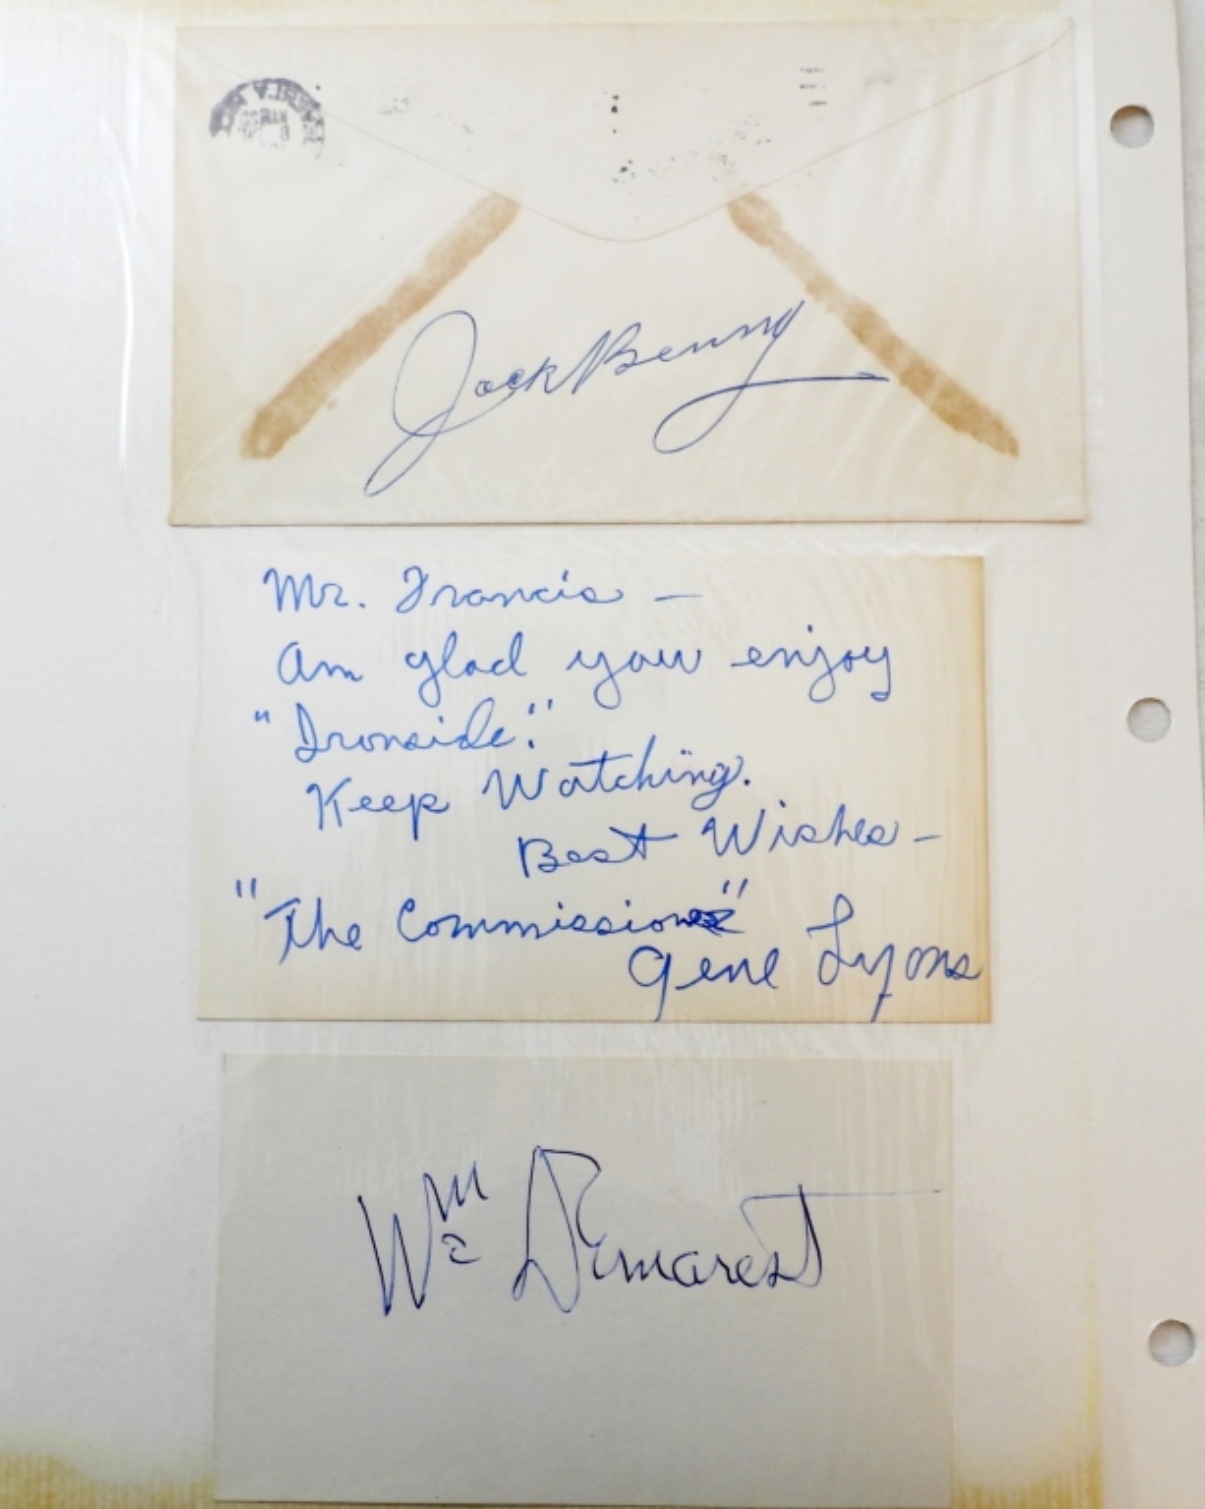 Jack Benny
Mr. Francis —
Am glad you enjoy
"Ironside."
Keep Watching.
Best Wishes —
"The Commissioner"
Gene Lyons
Wm Demarest